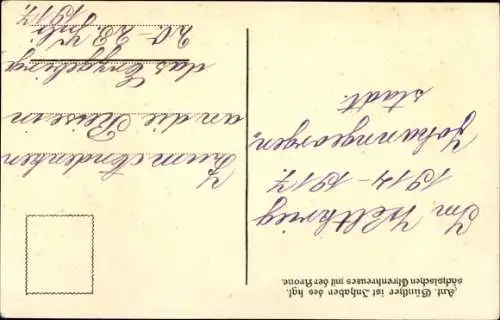 Ant. Günther ist Inhaber des kgl.
sächsischen Ehrenkreuzes mit der Krone.
Im Weltkrieg
1914-1917.
Johanngeorgen,
stadt.
Zum Andenken
an die Reise in
das Erzgebirg
20.-23. Juli
1917.